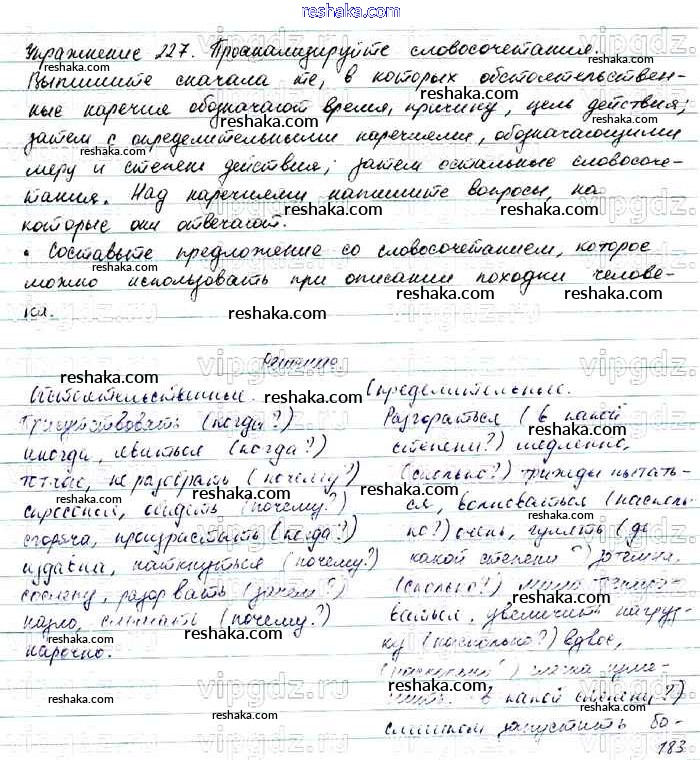 reshaka.com
Упражнение 227. Проанализируйте словосочетания.
Выпишите сначала те, в которых обстоятельствен-
ные наречия обозначают время, причину, цель действия;
затем с определительными наречиями, обозначающими
меру и степень действия; затем остальные словосоче-
тания. Над наречиями напишите вопросы, на
которые они отвечают.
• Составьте предложение со словосочетанием, которое
можно использовать при описании походки челове-
ка.
Обстоятельственные.
Присутствовать (когда?)
иногда, явиться (когда?)
тотчас, не разобрать (почему?)
спросонок, обидеть (почему?)
сгоряча, произрастать (когда?)
издавна, наткнуться (почему?)
сослепу, разорвать (зачем?)
назло, (почему?)
нарочно.
Определительные.
Разгораться (в какой
степени?) медленно,
(сколько?) трижды пытать-
ся, волноваться (насколь-
ко?) очень, гулять (до
какой степени?) дотемна,
(сколько?) много
увеличить нагруз-
ку (насколько?) вдвое,
(насколько?) слегка
(в какой степени?)
слишком запустить бо-
183